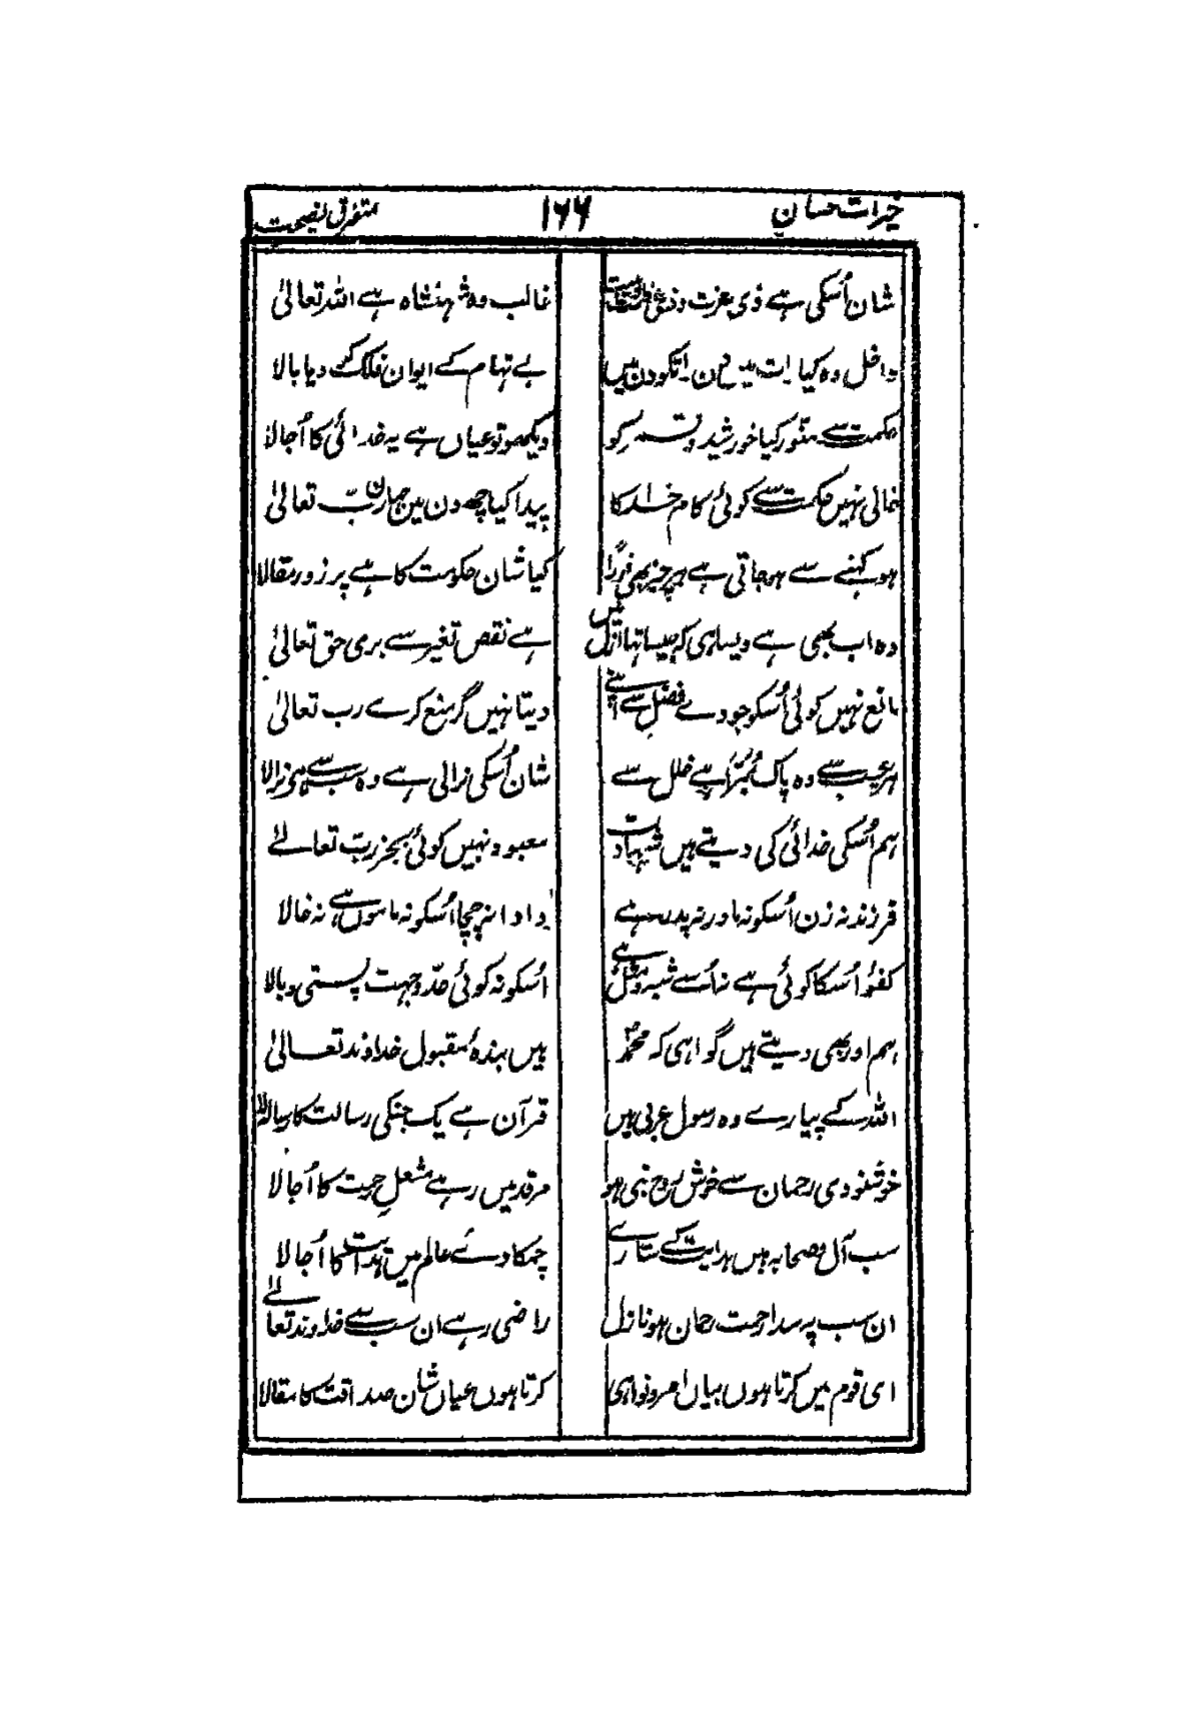 خیرات حسان ۱۶۶ متفرق نصیحت
شان اُسکی ہے ذی عزت و ذی غالب وہ شہنشاہ ہے اللہ تعالیٰ
داخل وہ کیا دن میں بے تہام کے ایوان فلک دیا بالا
حکمت سے منّور کیا خورشید و قمر کو دیکھو تو عیاں ہے یہ خدائی کا اُجالا
خالی نہیں حکمت سے کوئی کام خدا کا پیدا کیا چھ دن میں جہاں ربّ تعالیٰ
ہو کہنے سے ہو جاتی ہے ہر چیز بھی فورًا کیا شان حکومت کا ہے پر زور مقالا
وہ اب بھی ہے ویسا ہی کہ جیسا تہا ازل میں ہے نقص تغیر سے بری حق تعالیٰ
مانع نہیں کوئی اُسکو جو دے فضل سے اپنے دیتا نہیں گر منع کرے رب تعالیٰ
ہر عیب سے وہ پاک مُبرّا ہے خلل سے شان اُسکی نرالی ہے وہ سب سے ہی نرالا
ہم اُسکی خدائی کی دیتے ہیں شہادت معبود نہیں کوئی بجز ربّ تعالےٰ
فرزند نہ زن اُسکو نہ مادر نہ پدر ہے دادا نہ چچا اُسکو نہ ماموں ہے نہ خالا
کفوُا اُسکا کوئی ہے نہ اُسے شبہ و مثل ہے اُسکو نہ کوئی حدّ و جہت پستی و بالا
ہم اور بھی دیتے ہیں گواہی کہ محمدؐ ہیں بندۂ مقبول خداوند تعالیٰ
اللہ کے پیارے وہ رسول عربی ہیں قرآن ہے یک جنکی رسالت کا رسالہ
خوشنودی رحمان سے خوش روح نبی ہو مرقد میں رہے مشعل رحمت کا اُجالا
سب آل و صحابہ ہیں ہدایت کے ستارے چمکا دئے عالم میں ہدایت کا اُجالا
ان سب پہ سدا رحمت رحمان ہو نازل راضی رہے ان سب سے خداوند تعالےٰ
ای قوم میں کرتا ہوں بیاں امر و نواہی کرتا ہوں عیاں شان صداقت کا مقالا